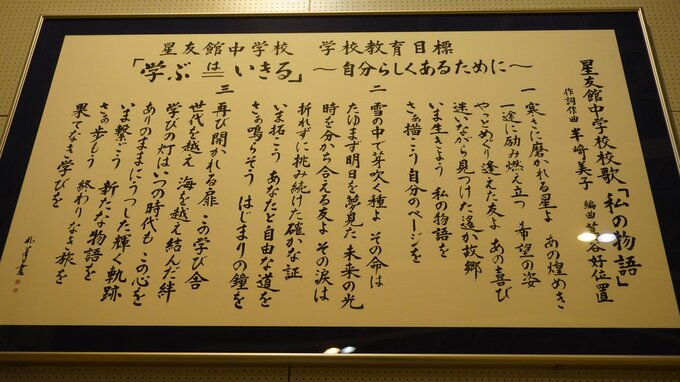 星友館中学校　学校教育目標
「学ぶ は いきる」～自分らしくあるために～
星友館中学校校歌「私の物語」
作詞作曲 半﨑美子　編曲 谷好位置
一 寒さに磨かれる星よ　あの煌めき
一途に励み燃え立つ　希望の姿
やっとめぐり逢えた友よ　あの喜び
迷いながら見つけた遙か故郷
いま生きよう　私の物語を
さぁ描こう自分のページを
二 雪の中で芽吹く種よ　その命は
たゆまず明日を夢見た　未来の光
時を分かち合える友よ　その涙は
折れずに挑み続けた確かな証
いま拓こう　あなたと自由な道を
さぁ鳴らそう　はじまりの鐘を
三 再び開かれる扉　この学び舎
世代を越え　海を越え結んだ絆
学びの灯はいつの時代も　この心を
ありのままにうつした輝く軌跡
いま繋ごう　新たな物語を
さぁ歩もう　終わりなき旅を
果てなき学びを